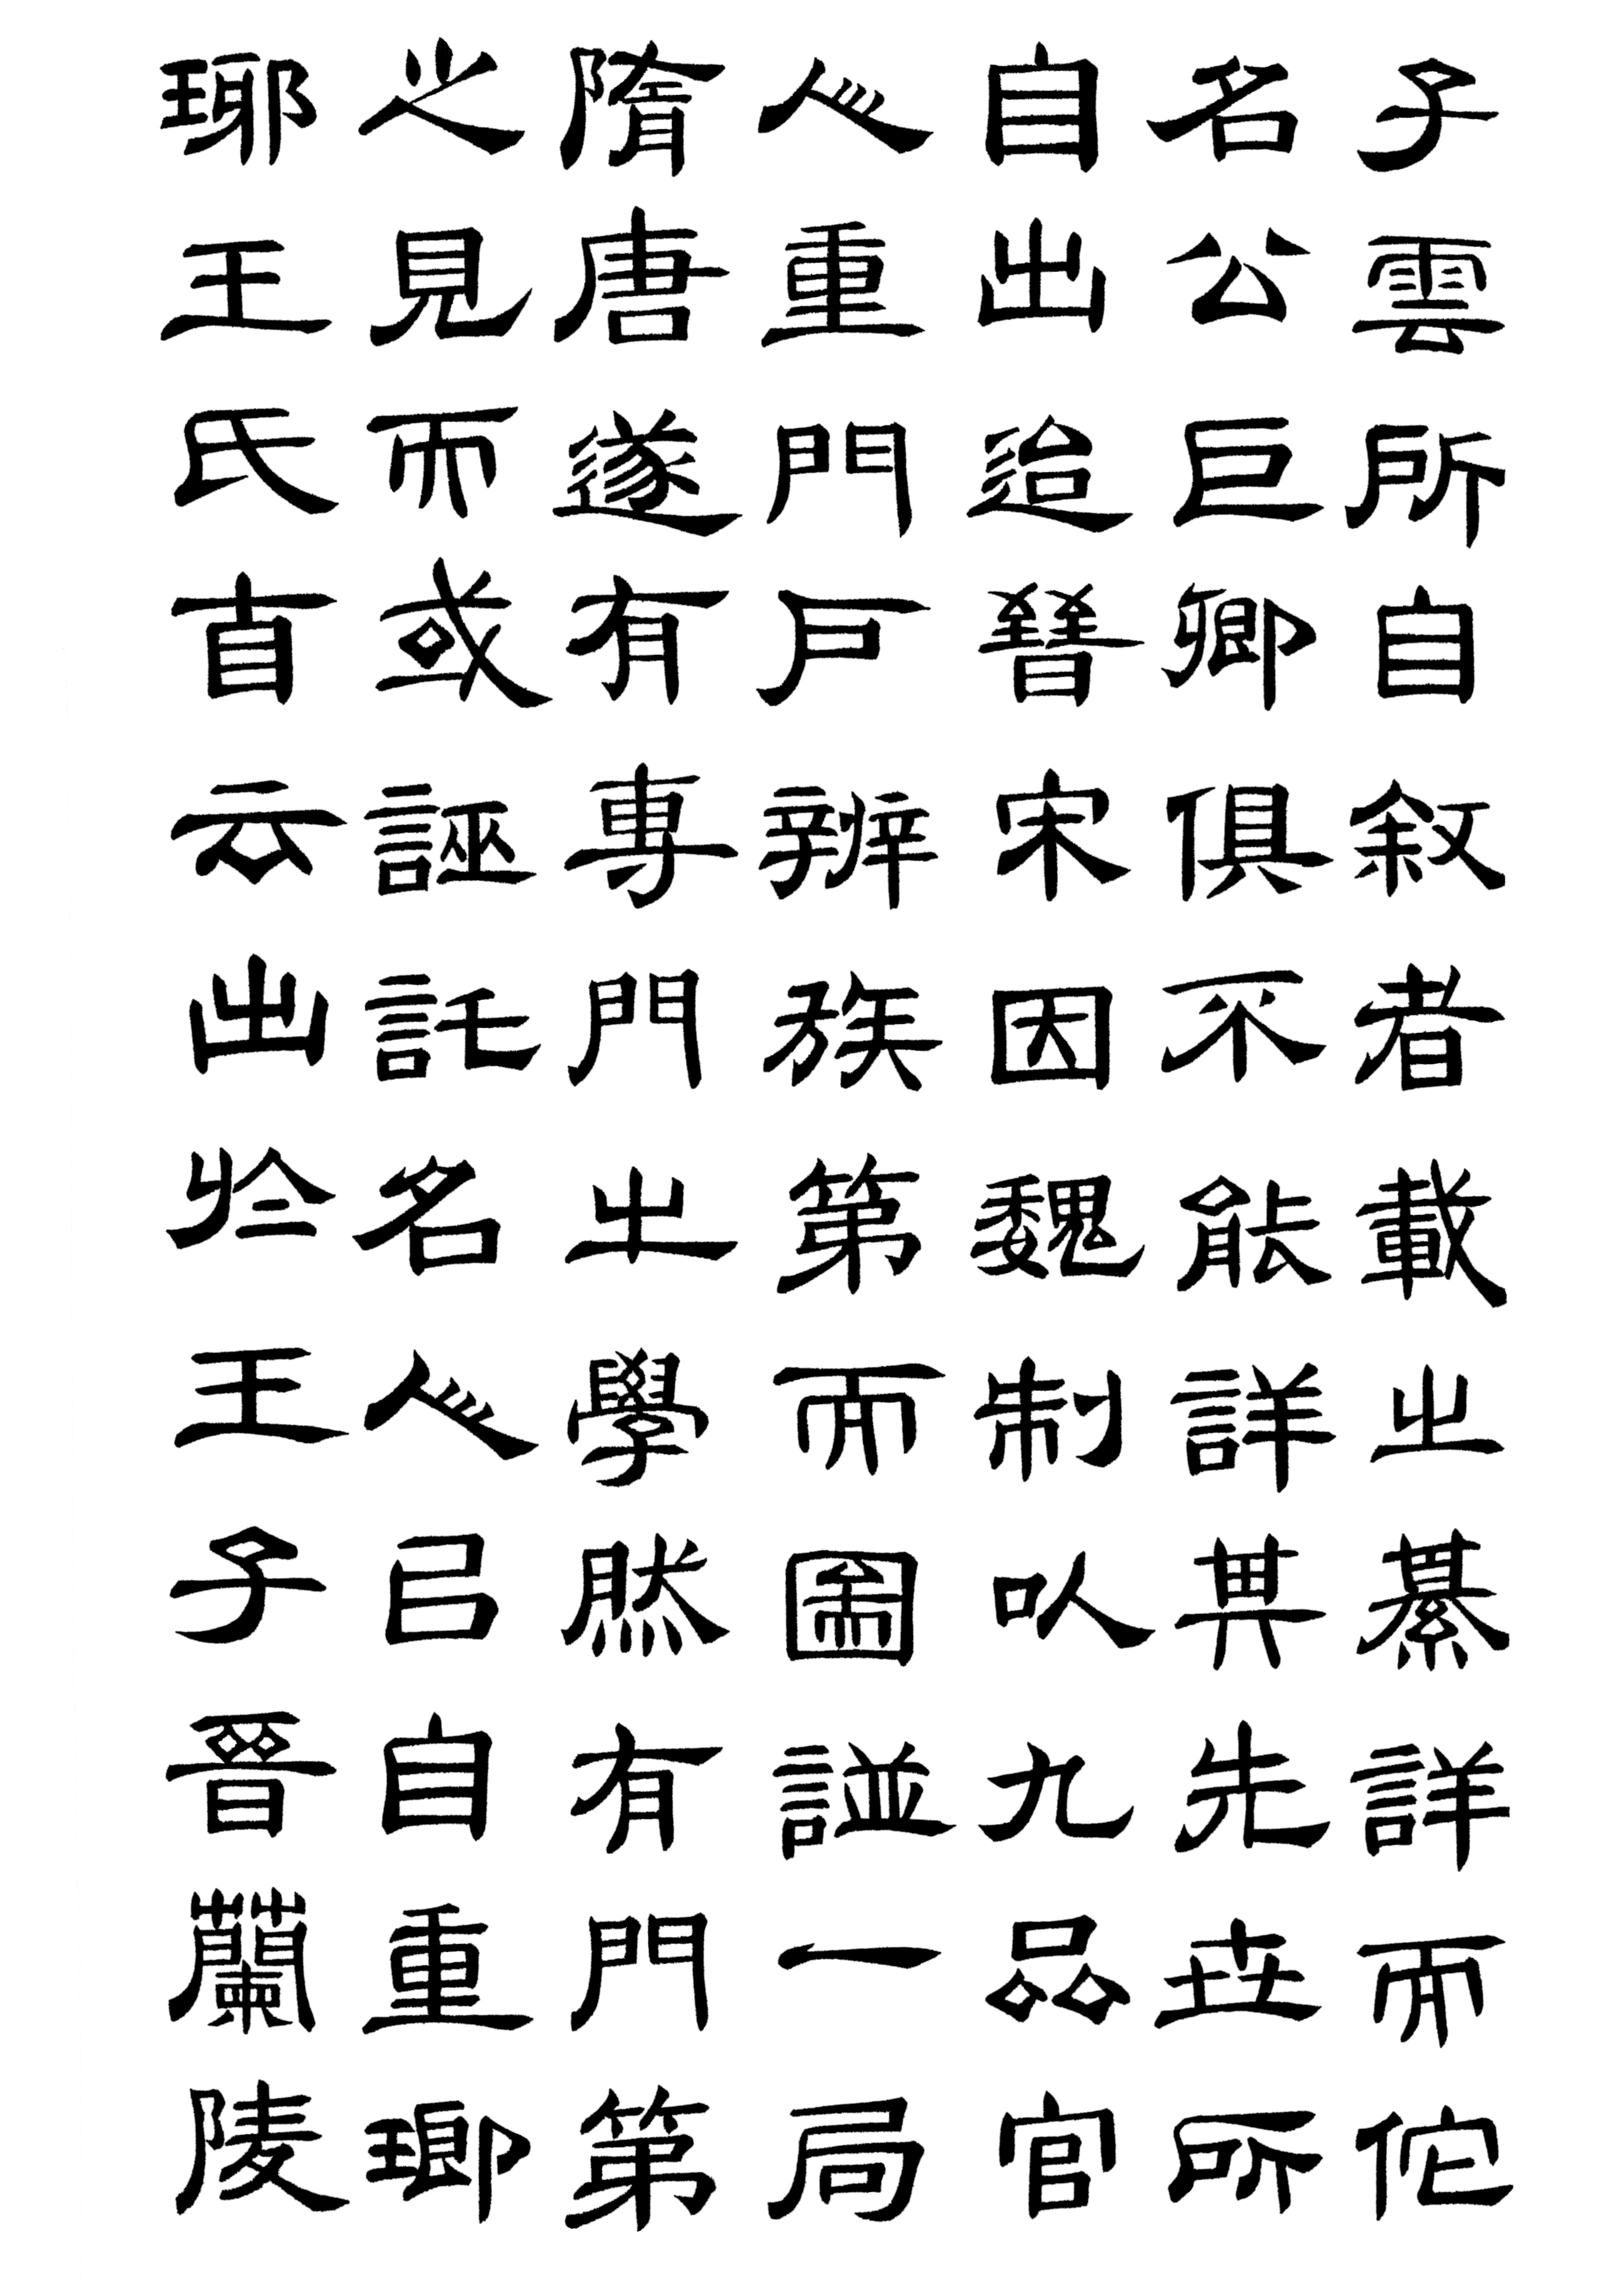 子雲所自叙者載之綦詳而佗
名公巨卿俱不能詳其先世所
自出迨晉宋因魏制以九品官
人重門戶辨族第而圖諩一局
隋唐遂有專門之學然有門第
之見而或誣託名人㠯自重瑯
琊王氏直云出於王子晉蘭陵